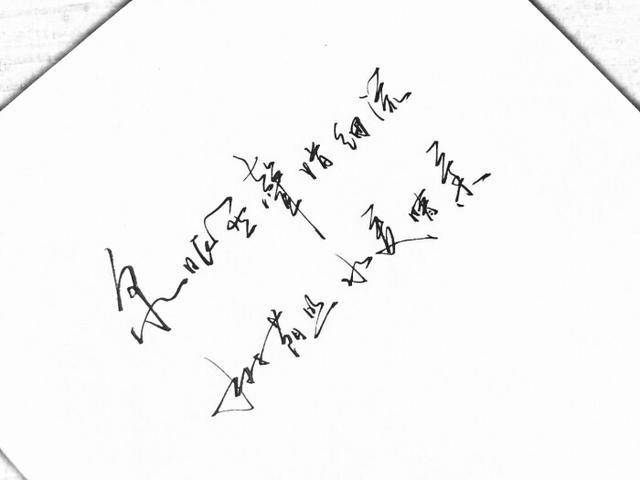 泉眼无聲惜细流
树荫照水爱晴柔